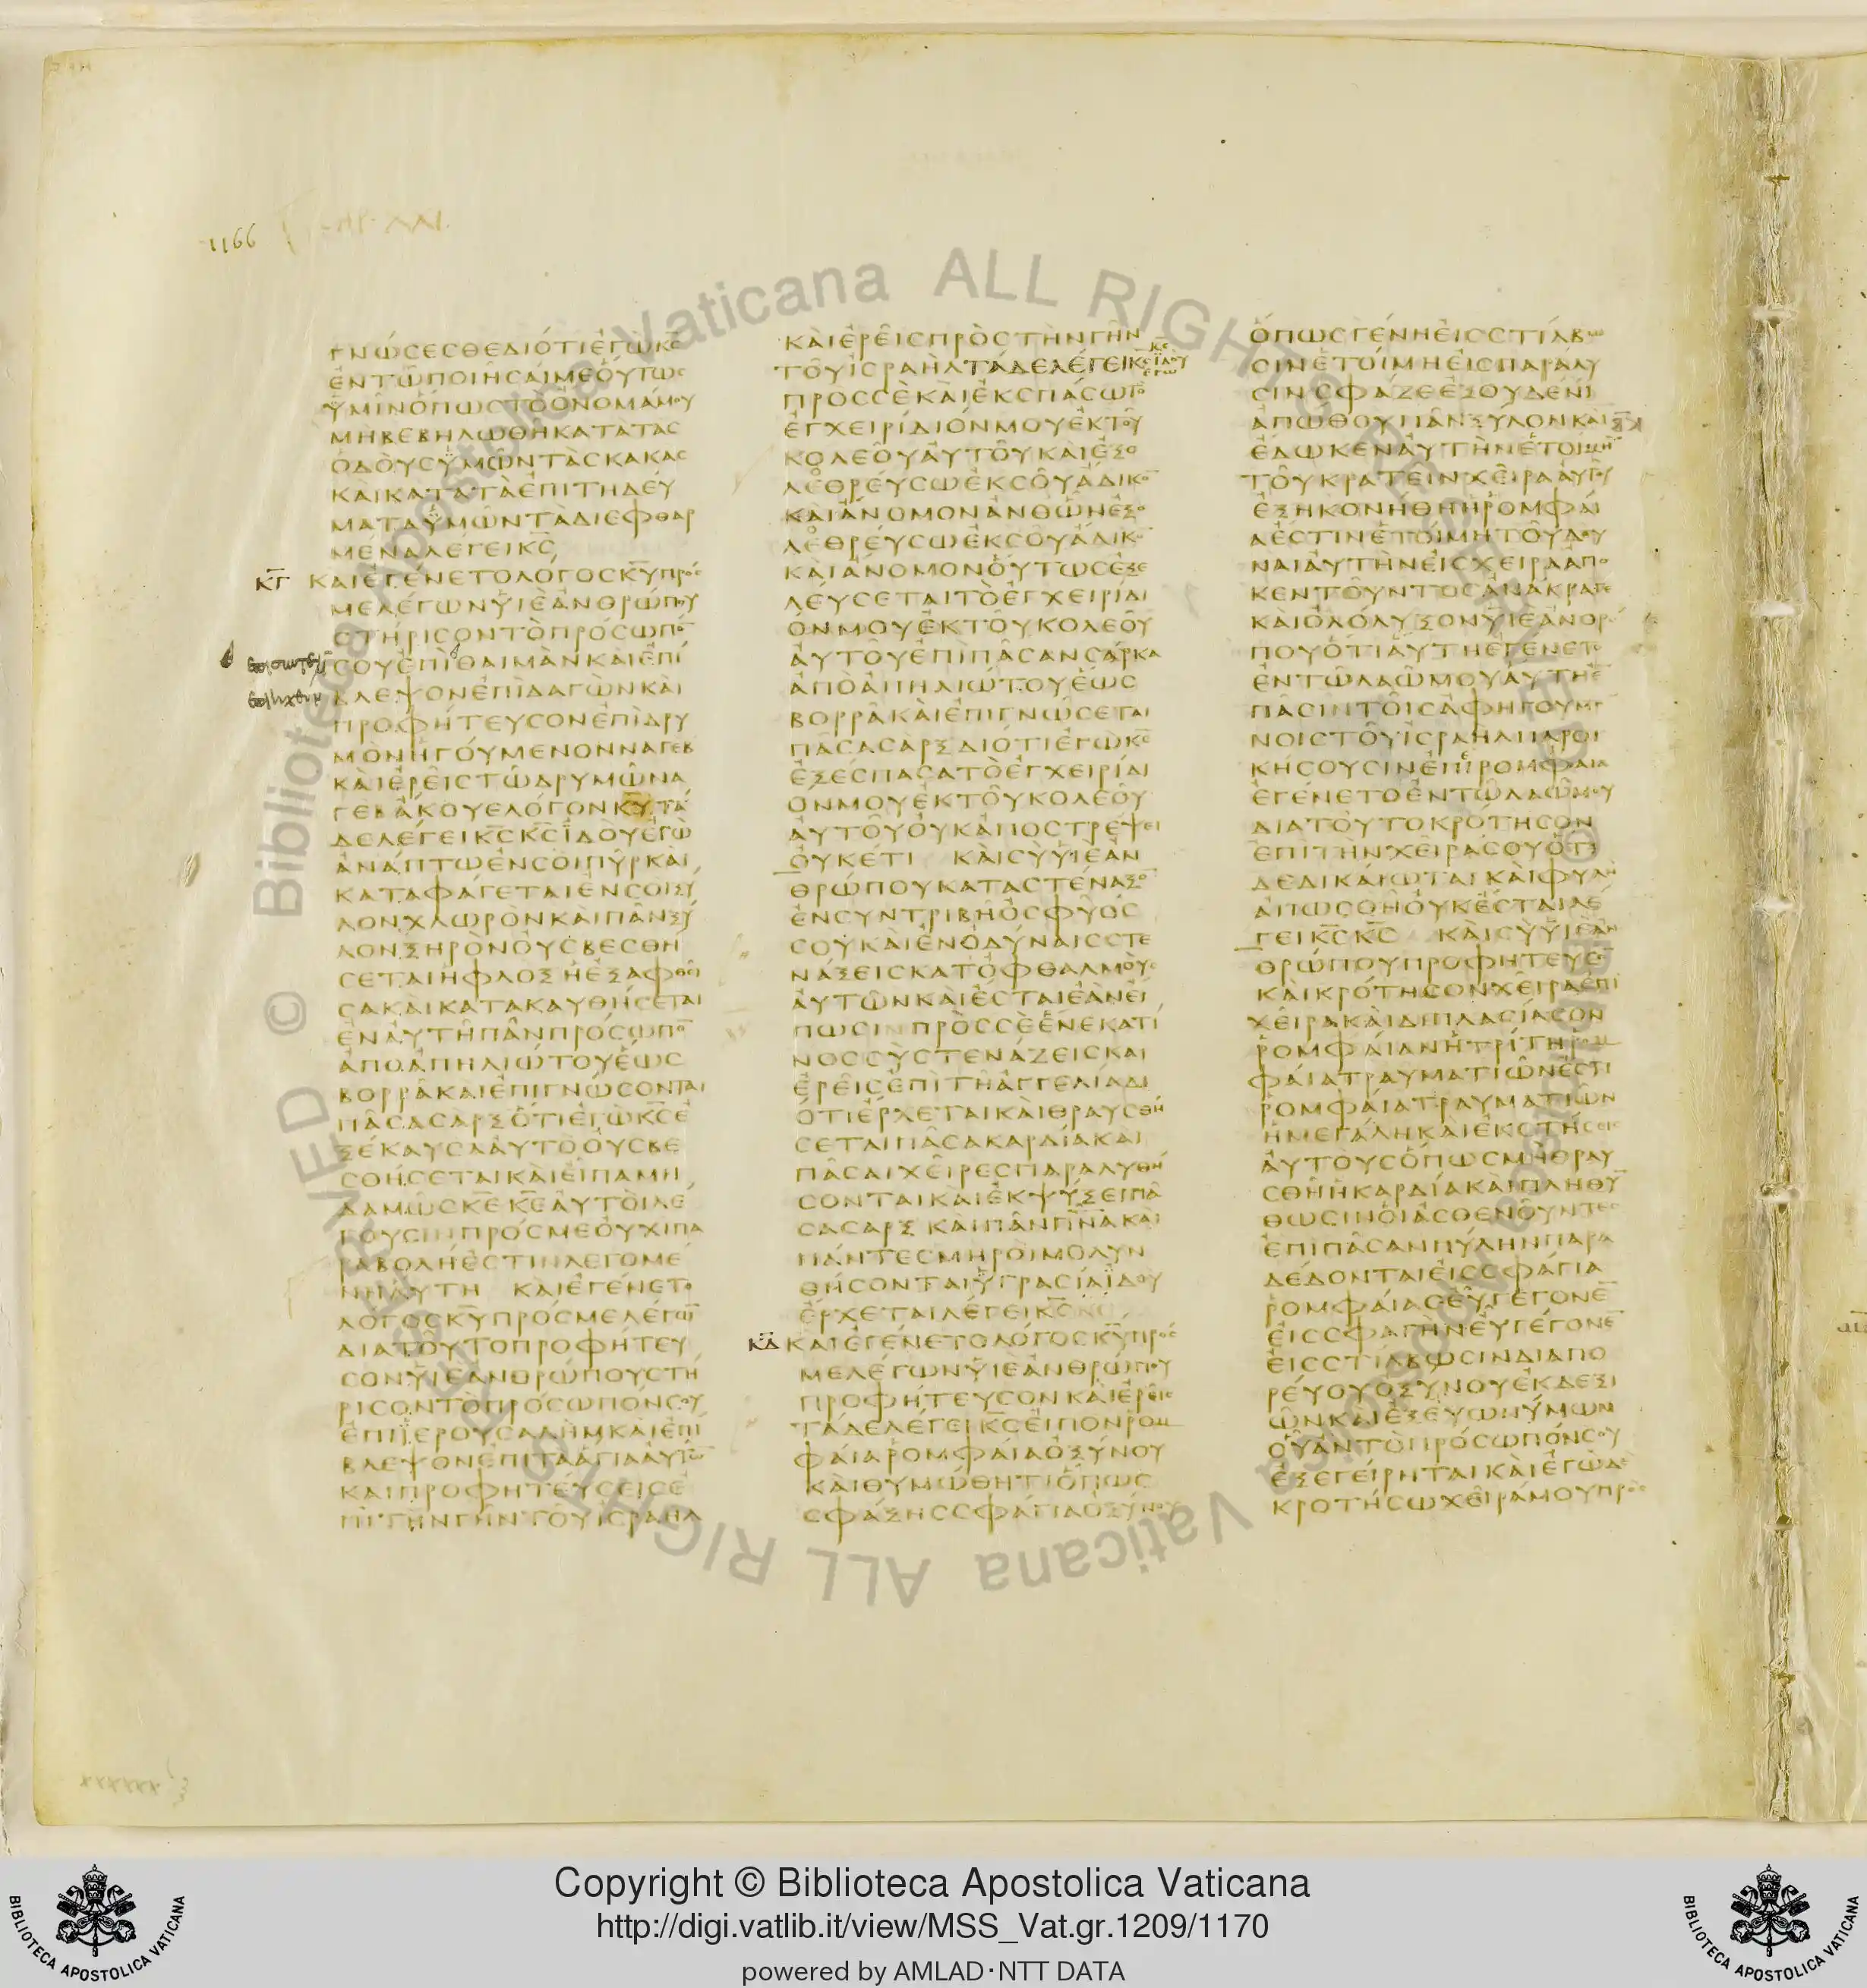 1166
ΓΝΩΣΕΣΘΕΔΙΟΤΙΕΓΩΚΣ
ΕΝΤΩΠΟΙΗΣΑΙΜΕΟΥΤΩΣ
ΫΜΙΝΟΠΩΣΤΟΟΝΟΜΑΜΟΥ
ΜΗΒΕΒΗΛΩΘΗΚΑΤΑΤΑΣ
ΟΔΟΥΣΫΜΩΝΤΑΣΚΑΚΑΣ
ΚΑΙΚΑΤΑΤΑΕΠΙΤΗΔΕΥ
ΜΑΤΑΫΜΩΝΤΑΔΙΕΦΘΑΡ
ΜΕΝΑΛΕΓΕΙΚΣ
ΚΓ ΚΑΙΕΓΕΝΕΤΟΛΟΓΟΣΚΥΠΡΟΣ
ΜΕΛΕΓΩΝΫΙΕΑΝΘΡΩΠΟΥ
ΣΤΗΡΙΣΟΝΤΟΠΡΟΣΩΠΟ
ΣΟΥΕΠΙΘΑΙΜΑΝΚΑΙΕΠΙ
ΒΛΕΨΟΝΕΠΙΔΑΓΩΝΚΑΙ
ΠΡΟΦΗΤΕΥΣΟΝΕΠΙΔΡΥ
ΜΟΝΗΓΟΥΜΕΝΟΝΝΑΓΕΒ
ΚΑΙΕΡΕΙΣΤΩΔΡΥΜΩΝΑ
ΓΕΒΑΚΟΥΕΛΟΓΟΝΚΥΤΑ
ΔΕΛΕΓΕΙΚΣΚΣΪΔΟΥΕΓΩ
ΑΝΑΠΤΩΕΝΣΟΙΠΥΡΚΑΙ
ΚΑΤΑΦΑΓΕΤΑΙΕΝΣΟΙΞΥ
ΛΟΝΧΛΩΡΟΝΚΑΙΠΑΝΞΥ
ΛΟΝΞΗΡΟΝΟΥΣΒΕΣΘΗ
ΣΕΤΑΙΗΦΛΟΞΗΕΞΑΦΘΕΙ
ΣΑΚΑΙΚΑΤΑΚΑΥΘΗΣΕΤΑΙ
ΕΝΑΥΤΗΠΑΝΠΡΟΣΩΠΟ
ΑΠΟΑΠΗΛΙΩΤΟΥΕΩΣ
ΒΟΡΡΑΚΑΙΕΠΙΓΝΩΣΟΝΤΑΙ
ΠΑΣΑΣΑΡΞΟΤΙΕΓΩΚΣΕ
ΞΕΚΑΥΣΑΑΥΤΟΟΥΣΒΕ
ΣΘΗΣΕΤΑΙΚΑΙΕΙΠΑΜΗ
ΔΑΜΩΣΚΕΚΕΑΥΤΟΙΛΕ
ΓΟΥΣΙΝΠΡΟΣΜΕΟΥΧΙΠΑ
ΡΑΒΟΛΗΕΣΤΙΝΛΕΓΟΜΕ
ΝΗΑΥΤΗ ΚΑΙΕΓΕΝΕΤΟ
ΛΟΓΟΣΚΥΠΡΟΣΜΕΛΕΓΩ
ΔΙΑΤΟΥΤΟΠΡΟΦΗΤΕΥ
ΣΟΝΫΙΕΑΝΘΡΩΠΟΥΣΤΗ
ΡΙΣΟΝΤΟΠΡΟΣΩΠΟΝΣΟΥ
ΕΠΙΪΕΡΟΥΣΑΛΗΜΚΑΙΕΠΙ
ΒΛΕΨΟΝΕΠΙΤΑΑΓΙΑΑΥΤΩ
ΚΑΙΠΡΟΦΗΤΕΥΣΕΙΣΕ
ΠΙΤΗΝΓΗΝΤΟΥΙΣΡΑΗΛ
ΚΑΙΕΡΕΙΣΠΡΟΣΤΗΝΓΗΝ
ΤΟΥΙΣΡΑΗΛΤΑΔΕΛΕΓΕΙΚΣΪΔΟΥ
ΕΓΩ
ΠΡΟΣΣΕΚΑΙΕΚΣΠΑΣΩΤΟ
ΕΓΧΕΙΡΙΔΙΟΝΜΟΥΕΚΤΟΥ
ΚΟΛΕΟΥΑΥΤΟΥΚΑΙΕΞΟ
ΛΕΘΡΕΥΣΩΕΚΣΟΥΑΔΙΚΟ
ΚΑΙΑΝΟΜΟΝΑΝΘΩΝΕΞΟ
ΛΕΘΡΕΥΣΩΕΚΣΟΥΑΔΙΚΟ
ΚΑΙΑΝΟΜΟΝΟΥΤΩΣΕΞΕ
ΛΕΥΣΕΤΑΙΤΟΕΓΧΕΙΡΙΔΙ
ΟΝΜΟΥΕΚΤΟΥΚΟΛΕΟΥ
ΑΥΤΟΥΕΠΙΠΑΣΑΝΣΑΡΚΑ
ΑΠΟΑΠΗΛΙΩΤΟΥΕΩΣ
ΒΟΡΡΑΚΑΙΕΠΙΓΝΩΣΕΤΑΙ
ΠΑΣΑΣΑΡΞΔΙΟΤΙΕΓΩΚΣ
ΕΞΕΣΠΑΣΑΤΟΕΓΧΕΙΡΙΔΙ
ΟΝΜΟΥΕΚΤΟΥΚΟΛΕΟΥ
ΑΥΤΟΥΟΥΚΑΠΟΣΤΡΕΨΕΙ
ΟΥΚΕΤΙ ΚΑΙΣΥΫΙΕΑΝ
ΘΡΩΠΟΥΚΑΤΑΣΤΕΝΑΞΟ
ΕΝΣΥΝΤΡΙΒΗΟΣΦΥΟΣ
ΣΟΥΚΑΙΕΝΟΔΥΝΑΙΣΣΤΕ
ΝΑΞΕΙΣΚΑΤΟΦΘΑΛΜΟΥΣ
ΑΥΤΩΝΚΑΙΕΣΤΑΙΕΑΝΕΙ
ΠΩΣΙΝΠΡΟΣΣΕΕΝΕΚΑΤΙ
ΝΟΣΣΥΣΤΕΝΑΖΕΙΣΚΑΙ
ΕΡΕΙΣΕΠΙΤΗΑΓΓΕΛΙΑΔΙ
ΟΤΙΕΡΧΕΤΑΙΚΑΙΘΡΑΥΣΘΗ
ΣΕΤΑΙΠΑΣΑΚΑΡΔΙΑΚΑΙ
ΠΑΣΑΙΧΕΙΡΕΣΠΑΡΑΛΥΘΗ
ΣΟΝΤΑΙΚΑΙΕΚΨΥΞΕΙΠΑ
ΣΑΣΑΡΞΚΑΙΠΑΝΠΝΑΚΑΙ
ΠΑΝΤΕΣΜΗΡΟΙΜΟΛΥΝ
ΘΗΣΟΝΤΑΙΫΓΡΑΣΙΑΪΔΟΥ
ΕΡΧΕΤΑΙΛΕΓΕΙΚΣ
ΚΔ ΚΑΙΕΓΕΝΕΤΟΛΟΓΟΣΚΥΠΡΟΣ
ΜΕΛΕΓΩΝΫΙΕΑΝΘΡΩΠΟΥ
ΠΡΟΦΗΤΕΥΣΟΝΚΑΙΕΡΕΙΣ
ΤΑΔΕΛΕΓΕΙΚΣΕΙΠΟΝΡΟΜ
ΦΑΙΑΡΟΜΦΑΙΑΟΞΥΝΟΥ
ΚΑΙΘΥΜΩΘΗΤΙΟΠΩΣ
ΣΦΑΞΗΣΣΦΑΓΙΑΟΞΥΝΟΥ
ΟΠΩΣΓΕΝΗΕΙΣΣΤΙΛΒΩ
ΣΙΝΕΤΟΙΜΗΕΙΣΠΑΡΑΛΥ
ΣΙΝΣΦΑΖΕΕΞΟΥΔΕΝΕΙ
ΑΠΩΘΟΥΠΑΝΞΥΛΟΝΚΑΙ
ΕΔΩΚΕΝΑΥΤΗΝΕΤΟΙΜΗ
ΤΟΥΚΡΑΤΕΙΝΧΕΙΡΑΑΥΤΟΥ
ΕΞΗΚΟΝΗΘΗΗΡΟΜΦΑΙ
ΑΕΣΤΙΝΕΤΟΙΜΗΤΟΥΔΟΥ
ΝΑΙΑΥΤΗΝΕΙΣΧΕΙΡΑΑΠΟ
ΚΕΝΤΟΥΝΤΟΣΑΝΑΚΡΑΓΕ
ΚΑΙΟΛΟΛΥΞΟΝΫΙΕΑΝΘΡ
ΠΟΥΟΤΙΑΥΤΗΕΓΕΝΕΤΟ
ΕΝΤΩΛΑΩΜΟΥΑΥΤΗΕ
ΠΑΣΙΝΤΟΙΣΑΦΗΓΟΥΜΕ
ΝΟΙΣΤΟΥΙΣΡΑΗΛΠΑΡΟΙ
ΚΗΣΟΥΣΙΝΕΠΙΡΟΜΦΑΙΑ
ΕΓΕΝΕΤΟΕΝΤΩΛΑΩΜΟΥ
ΔΙΑΤΟΥΤΟΚΡΟΤΗΣΟΝ
ΕΠΙΤΗΝΧΕΙΡΑΣΟΥΟΤΙ
ΔΕΔΙΚΑΙΩΤΑΙΚΑΙΦΥΛΗ
ΑΠΩΣΘΗΟΥΚΕΣΤΑΙΛΕ
ΓΕΙΚΣΚΣ ΚΑΙΣΥΫΙΕΑΝ
ΘΡΩΠΟΥΠΡΟΦΗΤΕΥΣΟ
ΚΑΙΚΡΟΤΗΣΟΝΧΕΙΡΑΕΠΙ
ΧΕΙΡΑΚΑΙΔΙΠΛΑΣΙΑΣΟΝ
ΡΟΜΦΑΙΑΝΗΤΡΙΤΗΡΟΜ
ΦΑΙΑΤΡΑΥΜΑΤΙΩΝΕΣΤΙ
ΡΟΜΦΑΙΑΤΡΑΥΜΑΤΙΩΝ
ΗΜΕΓΑΛΗΚΑΙΕΚΣΤΗΣΕΙ
ΑΥΤΟΥΣΟΠΩΣΜΗΘΡΑΥ
ΣΘΗΗΚΑΡΔΙΑΚΑΙΠΛΗΘΥ
ΘΩΣΙΝΟΙΑΣΘΕΝΟΥΝΤΕΣ
ΕΠΙΠΑΣΑΝΠΥΛΗΝΠΑΡΑ
ΔΕΔΟΝΤΑΙΕΙΣΣΦΑΓΙΑ
ΡΟΜΦΑΙΑΣΕΥΓΕΓΟΝΕ
ΕΙΣΣΦΑΓΗΝΕΥΓΕΓΟΝΕ
ΕΙΣΣΤΙΛΒΩΣΙΝΔΙΑΠΟ
ΡΕΥΟΥΟΞΥΝΟΥΕΚΔΕΞΙ
ΩΝΚΑΙΕΞΕΥΩΝΥΜΩΝ
ΟΥΑΝΤΟΠΡΟΣΩΠΟΝΣΟΥ
ΕΞΕΓΕΙΡΗΤΑΙΚΑΙΕΓΩΔΕ
ΚΡΟΤΗΣΩΧΕΙΡΑΜΟΥΠΡΟΣ
© Biblioteca Apostolica Vaticana ALL RIGHTS RESERVED
Copyright © Biblioteca Apostolica Vaticana
http://digi.vatlib.it/view/MSS_Vat.gr.1209/1170
powered by AMLAD·NTT DATA
BIBLIOTECA APOSTOLICA VATICANA
BIBLIOTECA APOSTOLICA VATICANA